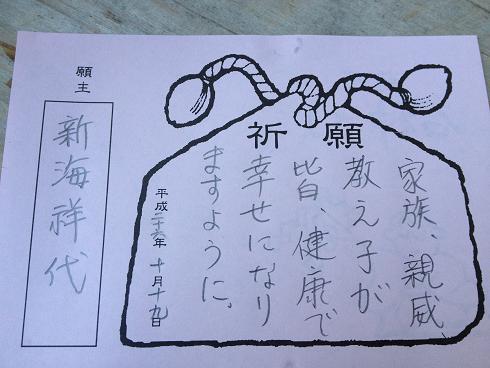 祈願
家族、親威、
教え子が
皆、健康で
幸せになり
ますように。
平成二十六年 十月十九日
願主
新海祥代